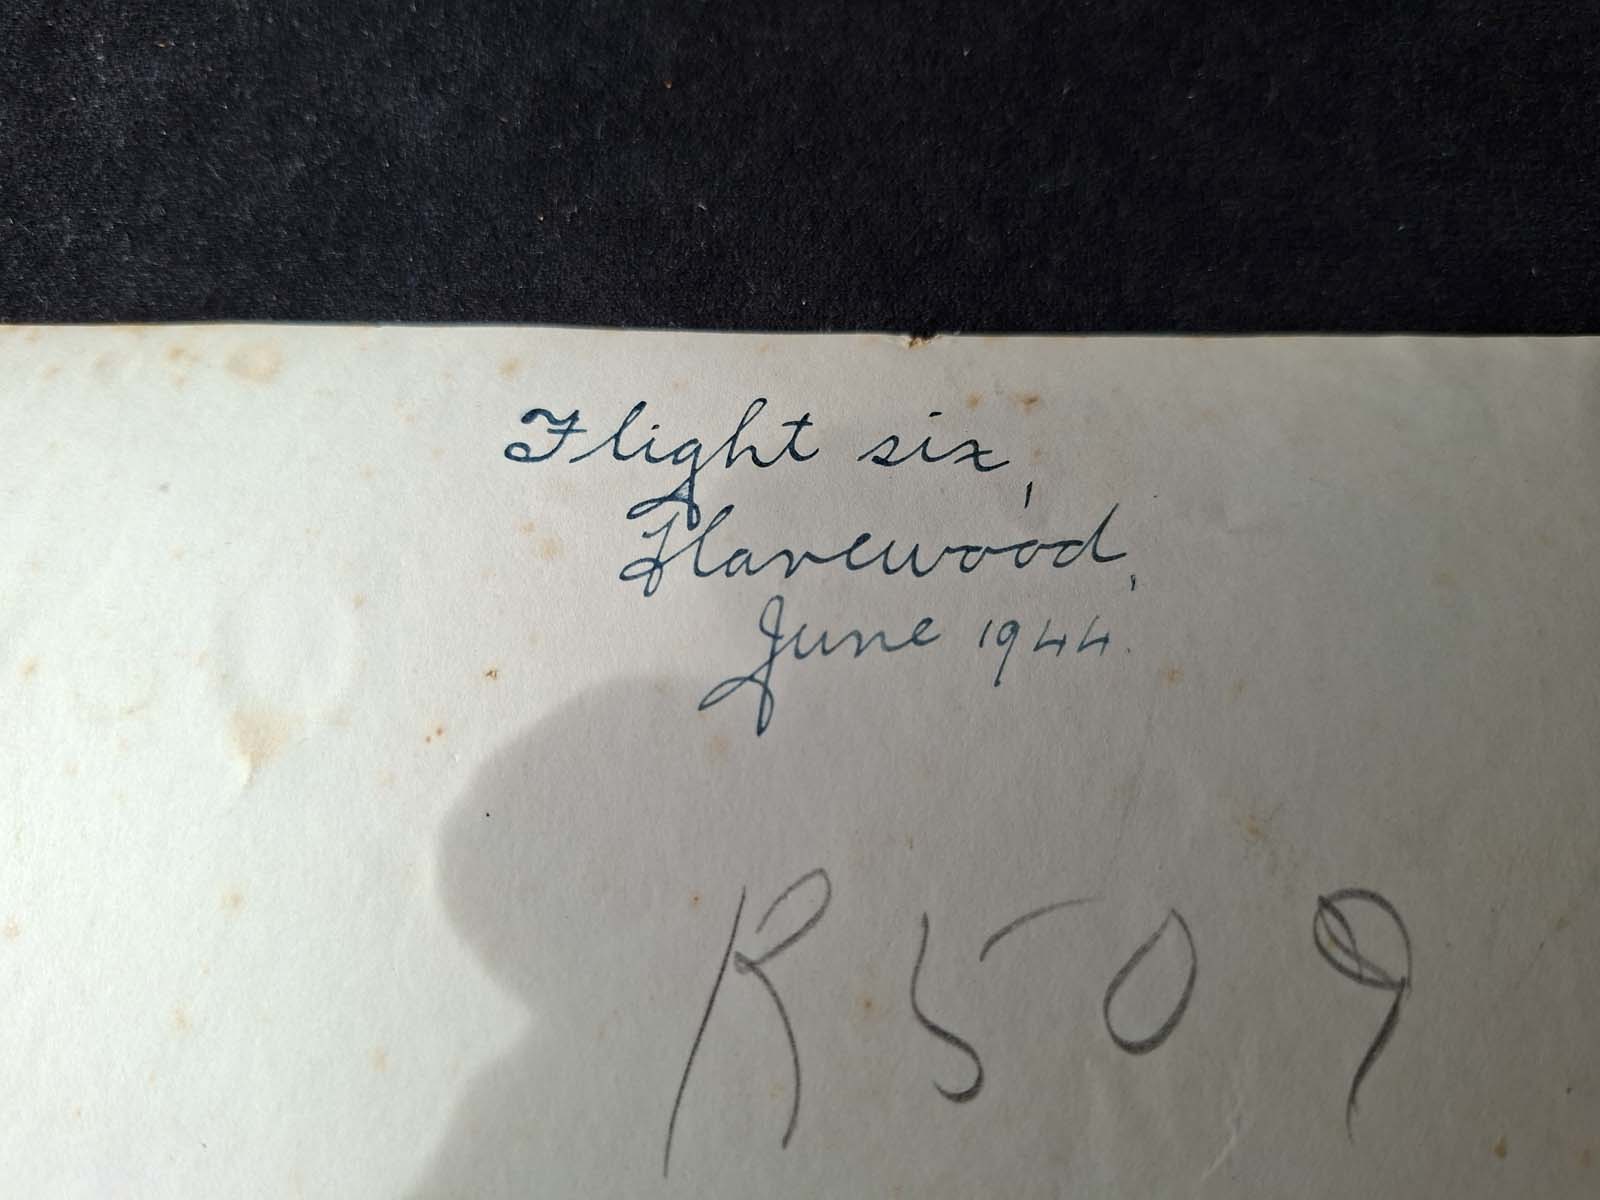 Flight six,
Harewood,
June 1944.
R509